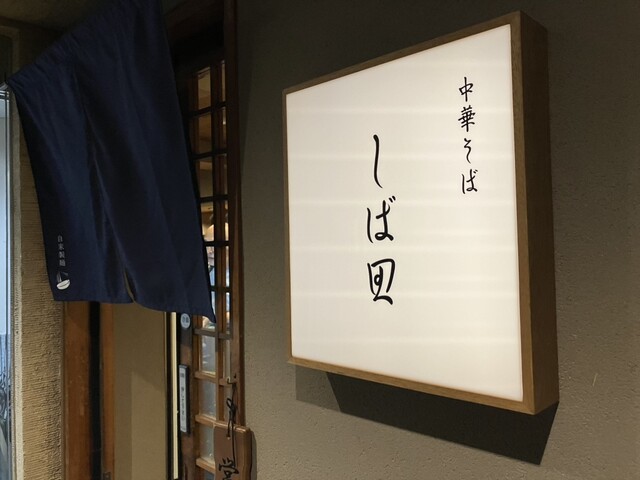 中華そば
しば田
自家製麺
営